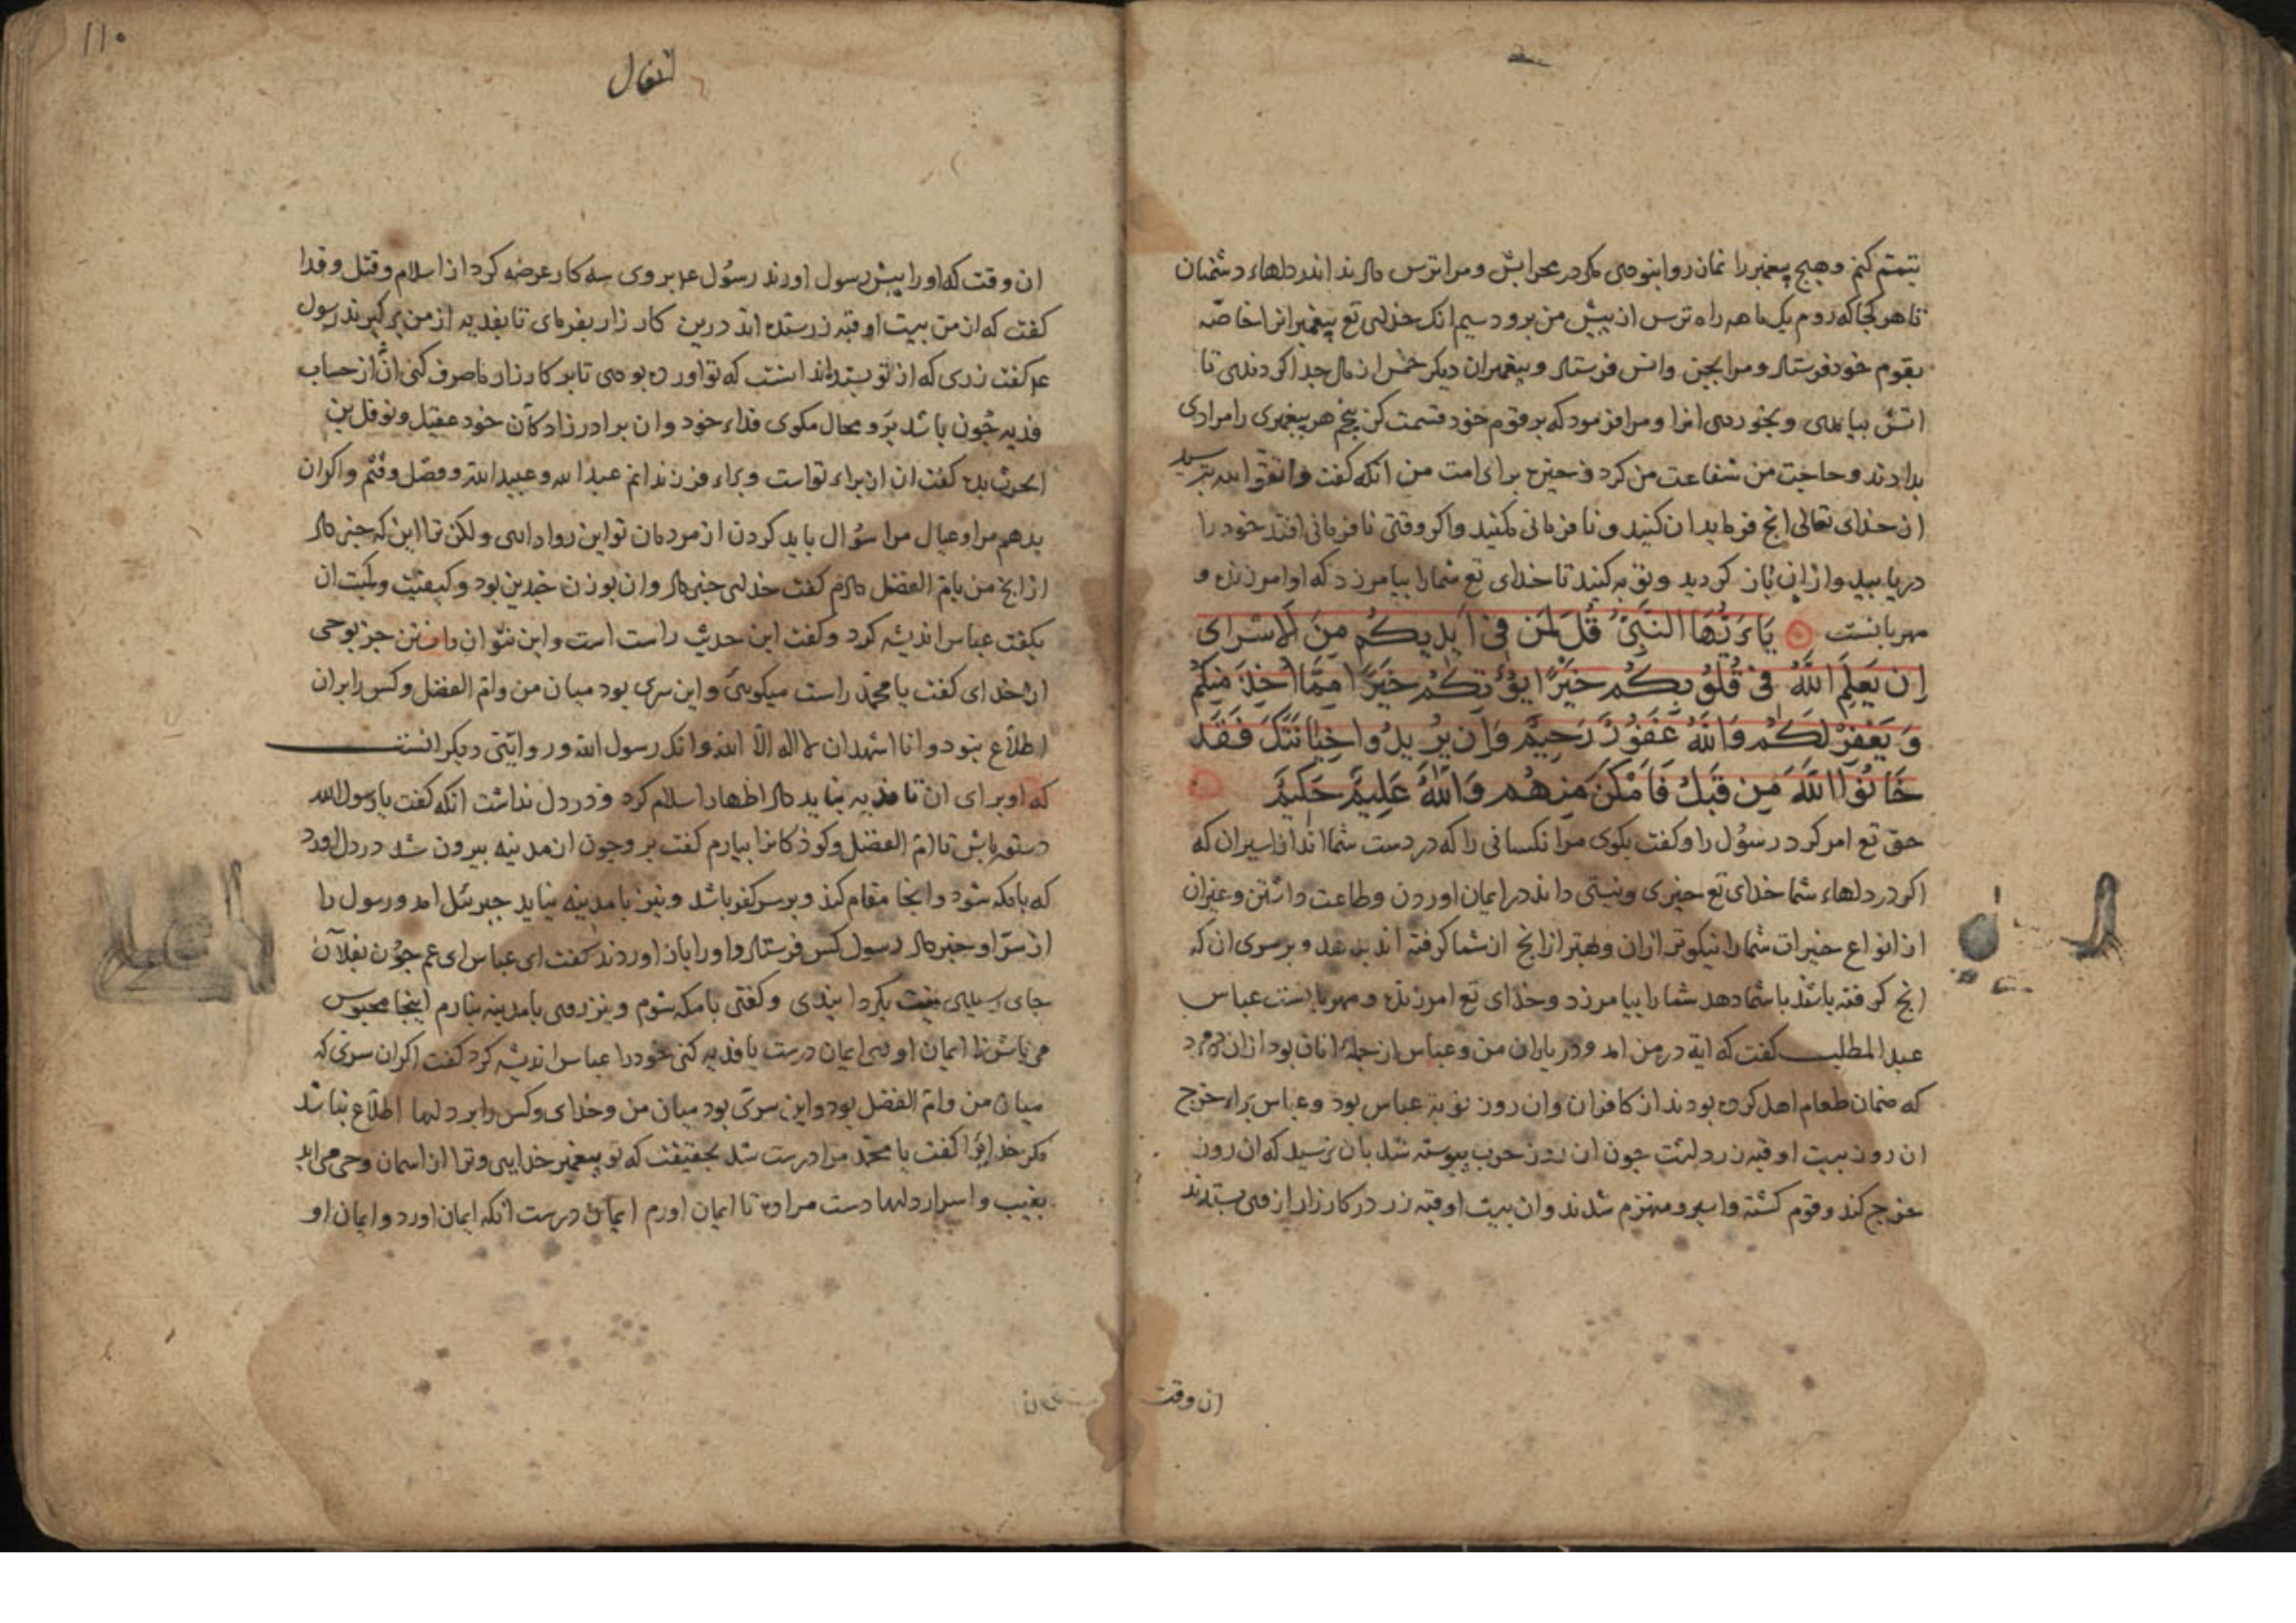 تیمم کنم وهیچ پیغمبر را نماز روا نبودی مکر در محرابش ومرا ترس دادند اندر دلهاء دشمنان
تا هر کجا که روم یک ماهه راه ترس از پیش من برود سیم انک خدای تع پیغمبرانرا خاصه
بقوم خود فرستاد ومرا بجن وانس فرستاد وپیغمبران دیکر خمس از مال جدا کردندی تا
اتش بیامدی وبخوردی انرا ومرا فرمود که بر قوم خود قسمت کن پنجم هر پیغمبری را مرادی
بدادند وحاجت من شفاعت من کرد ذخیره برای امت من انکه کفت واتقوا الله بترسید
از خدای تعالی انچ فرماید ان کنید ونافرمانی مکنید واکر وقتی نافرمانی افتد خود را
دریابید واز ان باز کردید وتوبه کنید تا خدای تع شما را بیامرزد که او امرزنده و
مهربانست یَا ءَیُّهَا النَّبِیُّ قُل لِّمَن فِی أَیْدِیکُم مِنَ الأَسْرَای
إِن یَعْلَمِ اللَّهُ فِی قُلُوبِکُمْ خَیْرًا یُؤْتِکُمْ خَیْرًا مِمَّا أُخِذَ مِنکُمْ
وَیَغْفِرْ لَکُمْ وَاللَّهُ غَفُورٌ رَحِیمٌ وَإِن یُرِیدُوا خِیَانَتَکَ فَقَدْ
خَانُوا اللَّهَ مِن قَبْلُ فَأَمْکَنَ مِنْهُمْ وَاللَّهُ عَلِیمٌ حَکِیمٌ
حق تع امر کرد رسول را وکفت بکوی مر انکسانی را که در دست شما اند از اسیران که
اکر در دلهاء شما خدای تع خیری ونیتی داند در ایمان اوردن وطاعت داشتن وغیر ان
از انواع خیرات شما را نیکوتر از ان وبهتر از انچ از شما کرفته اند بدهد وبر سری ان که
انچ کرفته باشد با شما دهد شما را بیامرزد وخدای تع امرزنده ومهربانست عباس
عبد المطلب کفت که ایة در من امد ودر یاران من وعباس از جمله انان بود از ان ده مرد
که ضمان طعام اهل کرده بودند از کافران وان روز نوبة عباس بود وعباس براء خرج
ان روز بیست اوقیه زر داشت چون ان روز حرب پیوسته شد بان نرسید که ان روز
خرج کند وقوم کشته واسیر ومنهزم شدند وان بیست اوقیه زر در کارزار از وی بستدند
ان وقت
۱۱۰
انفال
ان وقت که او را پیش رسول اوردند رسول عم بر وی سه کار عرضه کرد از اسلام وقتل وفدا
کفت که از من بیست اوقیه زر ستده اند درین کارزار بفرمای تا بفدیه از من برکیرند رسول
عم کفت زری که از تو بستده اند انست که تو اورده بودی تا بر کارزار ما صرف کنی ان از حساب
فدیه چون باشد برو محال مکوی فداء خود وان برادرزادکان خود عقیل ونوفل بن
الحرث بده کفت ان از براء تواست وبراء فرزندانم عبد الله وعبید الله وفضل وقثم واکر ان
بدهم مرا وعیال مرا سؤال باید کردن از مردمان تو این روا داری ولکن ترا این که خبر داد
از انچ من بام الفضل دادم کفت خدای خبر داد وان بوزن خبر این بود وکیفیت وکمیت ان
بکفت عباس اندیشه کرد وکفت این حدیث راست است واین نتوان دانستن جز بوحی
از خدای کفت یا محمد راست میکویی واین سری بود میان من وام الفضل وکس را بر ان
اطلاع نبود وانا اشهد ان لا اله الا الله وانک رسول الله ودر روایتی دیکر انست
که او برای ان تا فدیه نباید داد اظهار اسلام کرد ودر دل نداشت انکه کفت یا رسول الله
دستور باش تا ام الفضل وکودکانرا بیارم کفت برو چون از مدینه بیرون شد در دل اورد
که بامکه شود وانجا مقام کند وبر سر کفر باشد ونیز بامدینه نیاید جبرئل امد ورسول را
از سر او خبر داد رسول کس فرستاد واو را باز اوردند کفت ای عباس ای عم چون بفلان
جای رسیدی نیت بکردانیدی وکفتی بامکه شوم ونیز روی بامدینه نیارم اینجا محبوس
می باش تا ایمان اوری ایمان درست یا فدیه کنی خود را عباس اندیشه کرد کفت اکر ان سری که
میان من وام الفضل بود واین سری بود میان من وخدای وکس را بر دلها اطلاع نباشد
مکر خدایرا کفت یا محمد مرا درست شد بحقیقت که تو پیغمبر خدایی وترا از اسمان وحی می اید
بغیب واسرار دلها دست مرا ده تا ایمان اورم ایمان درست انکه ایمان اورد وایمان او